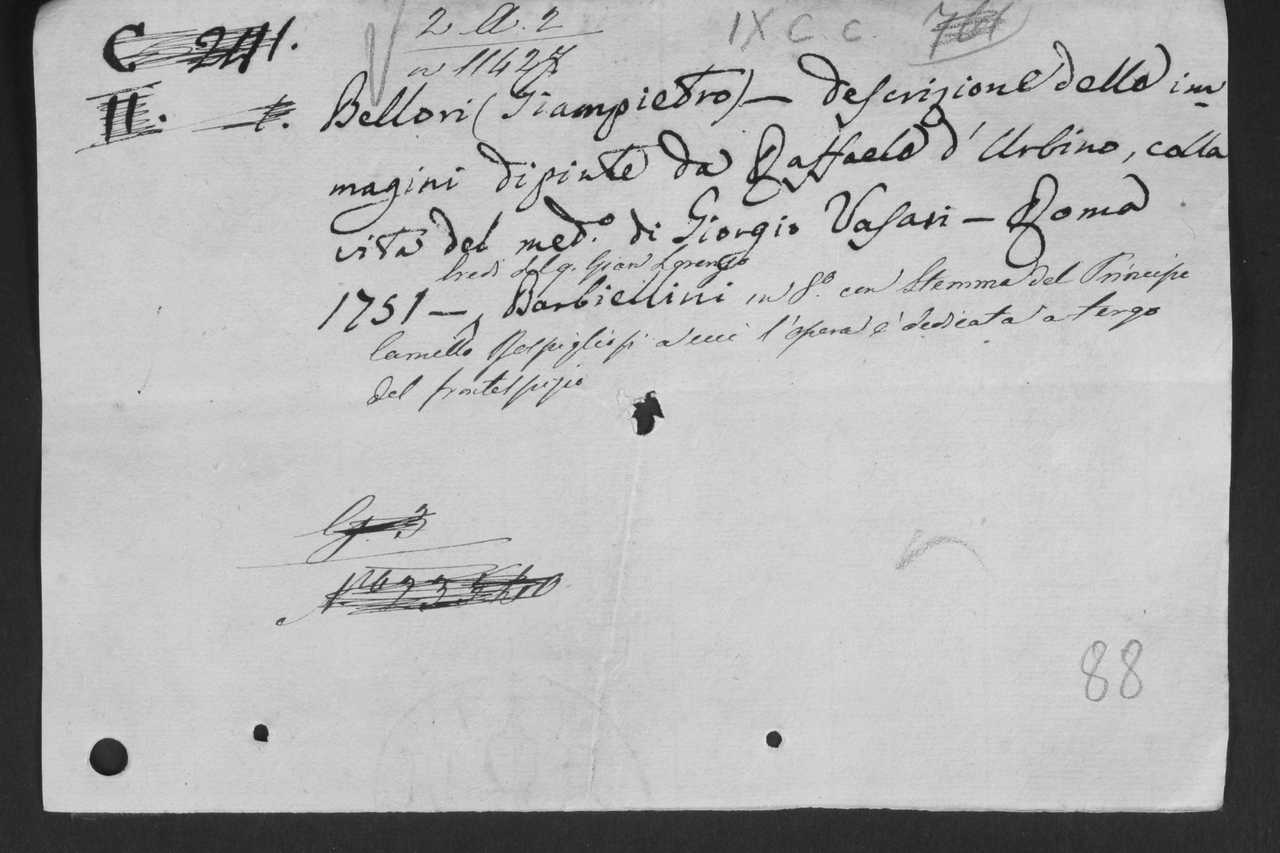 C 241.
2 A. 2
n 11428
IX C. C.
II. 1.
Bellori (Giampietro) — descrizione delle im
magini dipinte da Raffaele d'Urbino, colla
vita del med.o di Giorgio Vasari — Roma
eredi del q. Gian Lorenzo
1751 — Barbiellini in 8.o con Stemma del Principe
Camillo Rospigliosi a cui l'opera è dedicata a tergo
del frontespizio
88